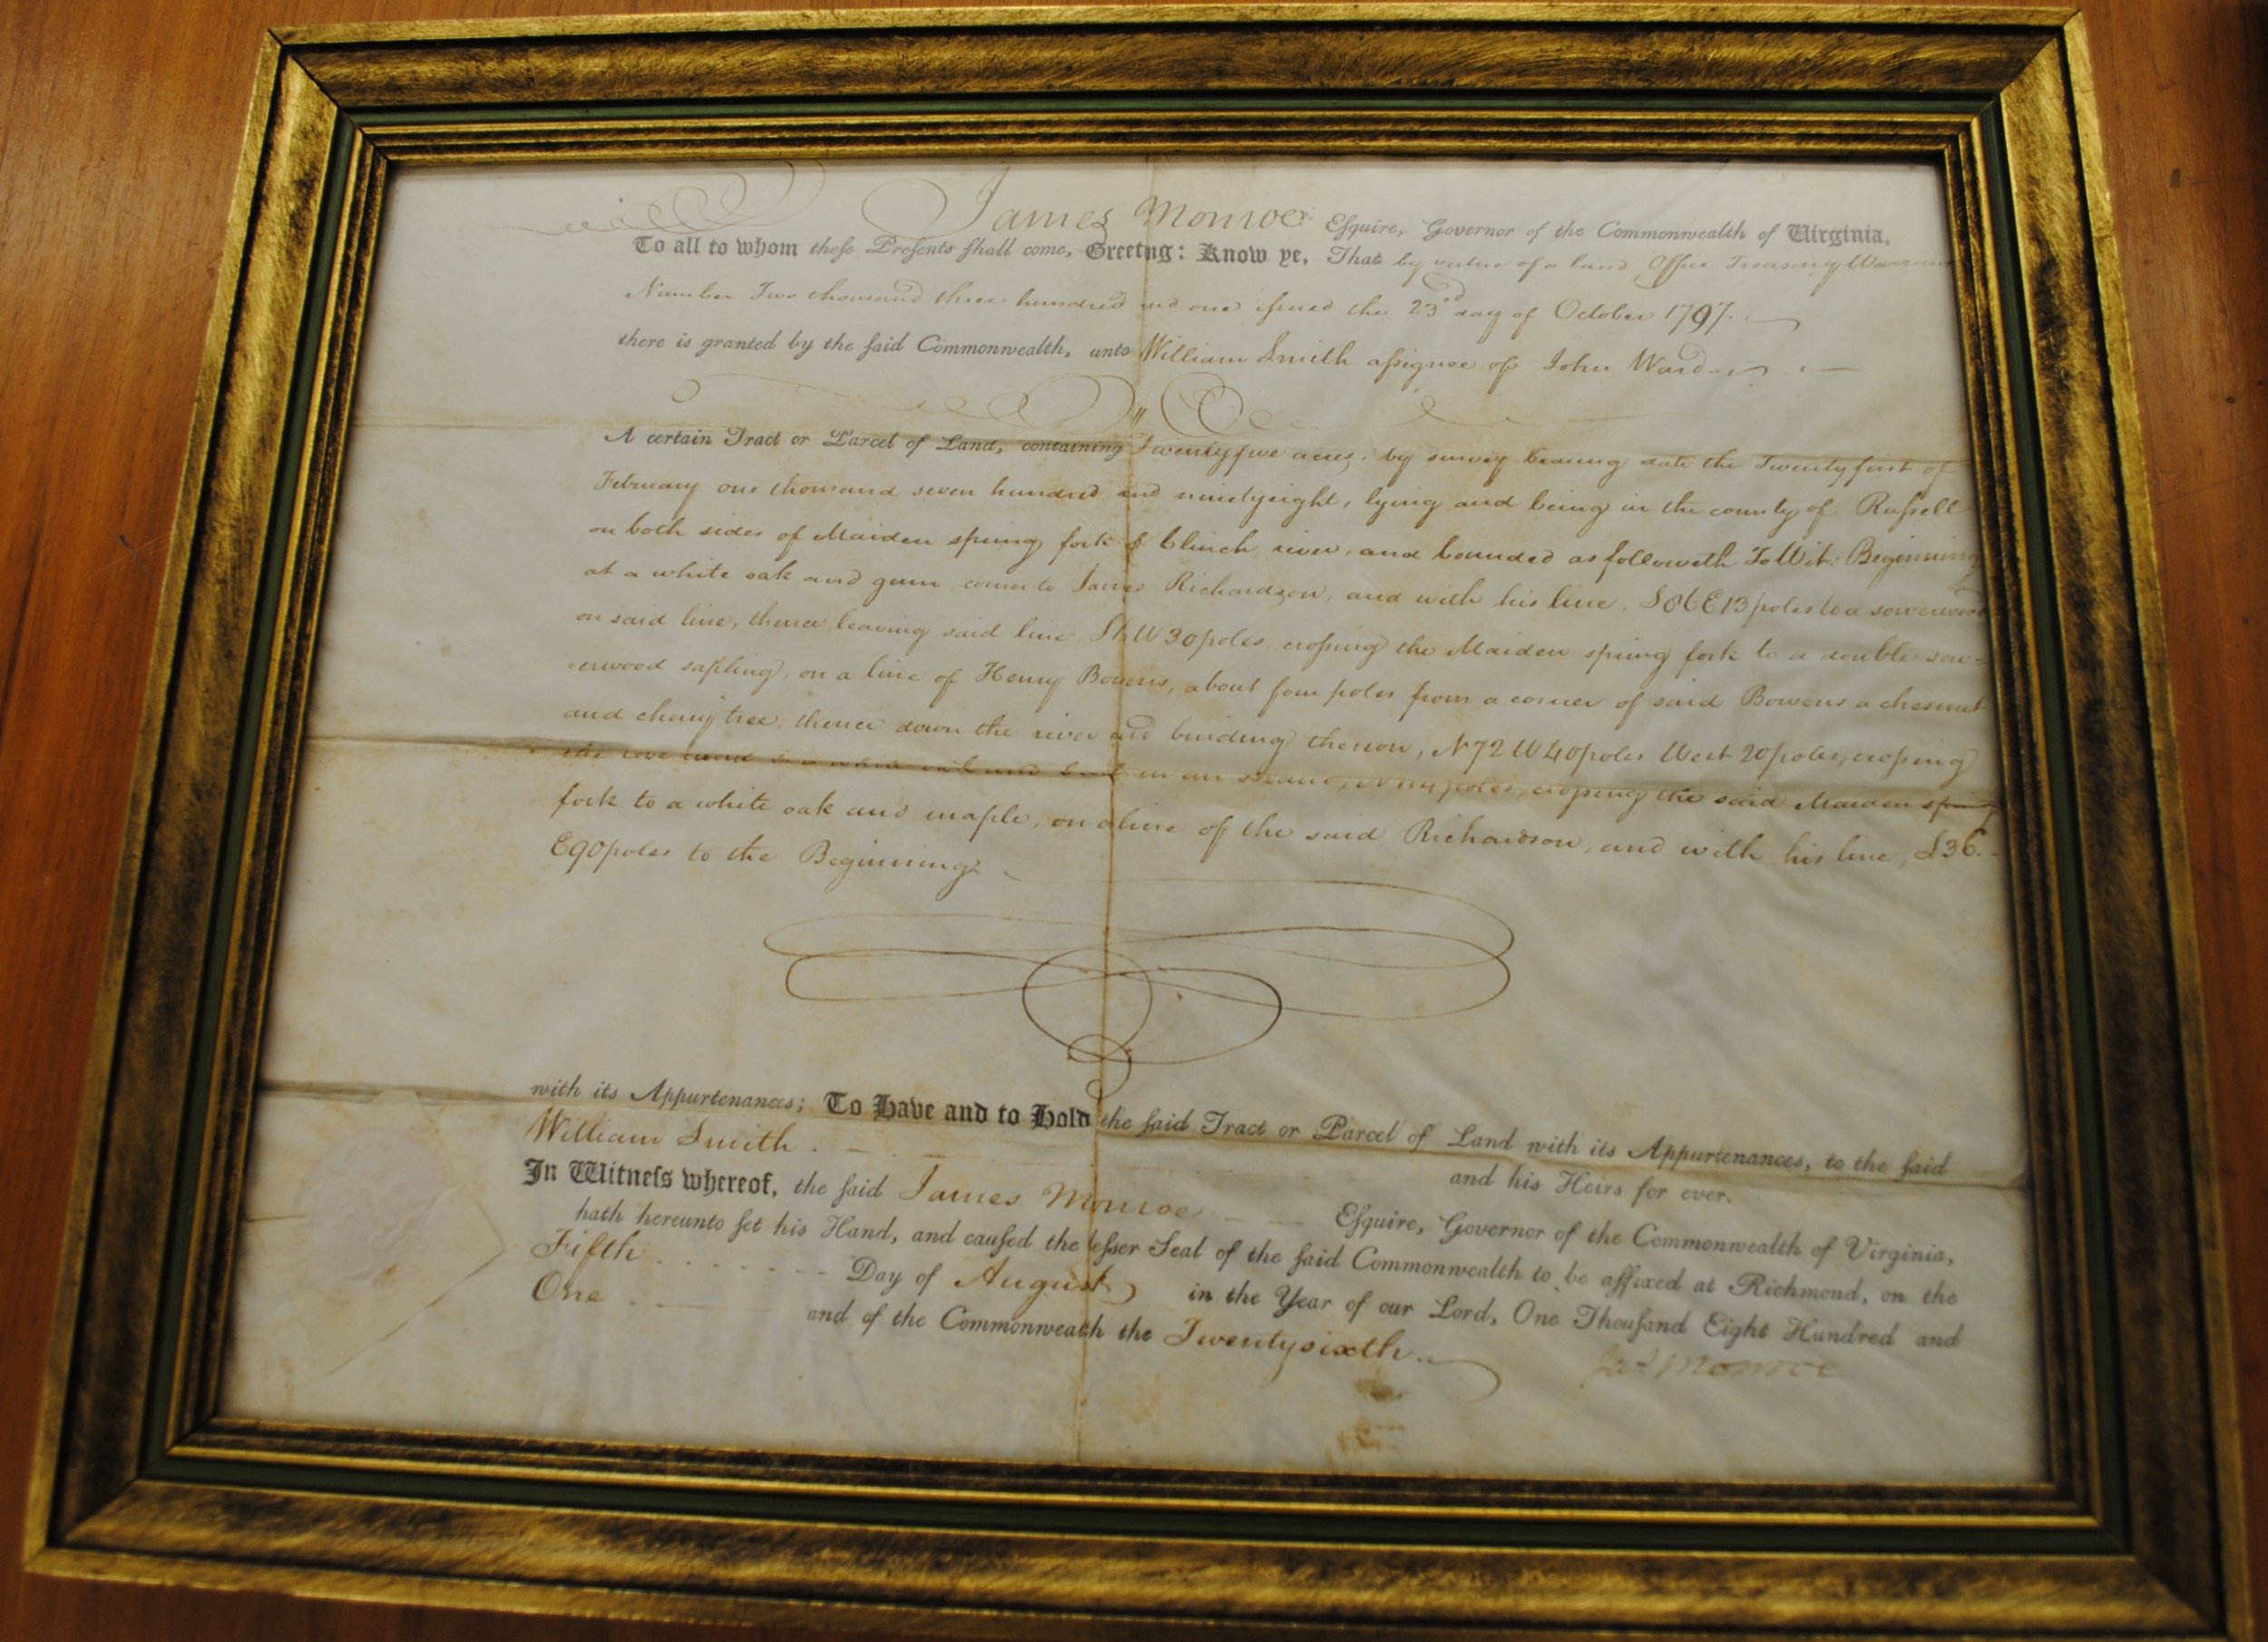 James Monroe Esquire, Governor of the Commonwealth of Virginia,
To all to whom these Presents shall come, Greetng: Know ye, That by virtue of a land Office Treasury Warrant
Number Two thousand three hundred and one issued the 23rd day of October 1797.
there is granted by the said Commonwealth, unto William Smith assignee of John Ward
A certain Tract or Parcel of Land, containing Twentyfive acres, by survey bearing date the Twentyfirst of
February one thousand seven hundred and ninetyeight, lying and being in the county of Russell
on both sides of Maiden spring fork of Clinch river, and bounded as followeth To Wit: Beginning
at a white oak and gum corner to James Richardson, and with his line, E 13 poles to a sowerwood
on said line, thence leaving said line, W 30 poles, crossing the Maiden spring fork to a double sow=
=erwood sapling, on a line of Henry Bowens, about four poles from a corner of said Bowens a chesnut
and cherry tree, thence down the river and binding thereon, N 72 W 40 poles West 20 poles, crossing
the to a white oak and in an poles, crossing the said Maiden spring
fork to a white oak and maple, on a line of the said Richardson, and with his line, S 36.
E 90 poles to the Beginning.
with its Appurtenances; To Have and to Hold the said Tract or Parcel of Land with its Appurtenances, to the said
William Smith. and his Heirs for ever.
In Witness whereof, the said James Monroe Esquire, Governor of the Commonwealth of Virginia,
hath hereunto set his Hand, and caused the lesser Seal of the said Commonwealth to be affixed at Richmond, on the
Fifth Day of August in the Year of our Lord, One Thousand Eight Hundred and
One and of the Commonwealth the Twentysixth.
Jas Monroe